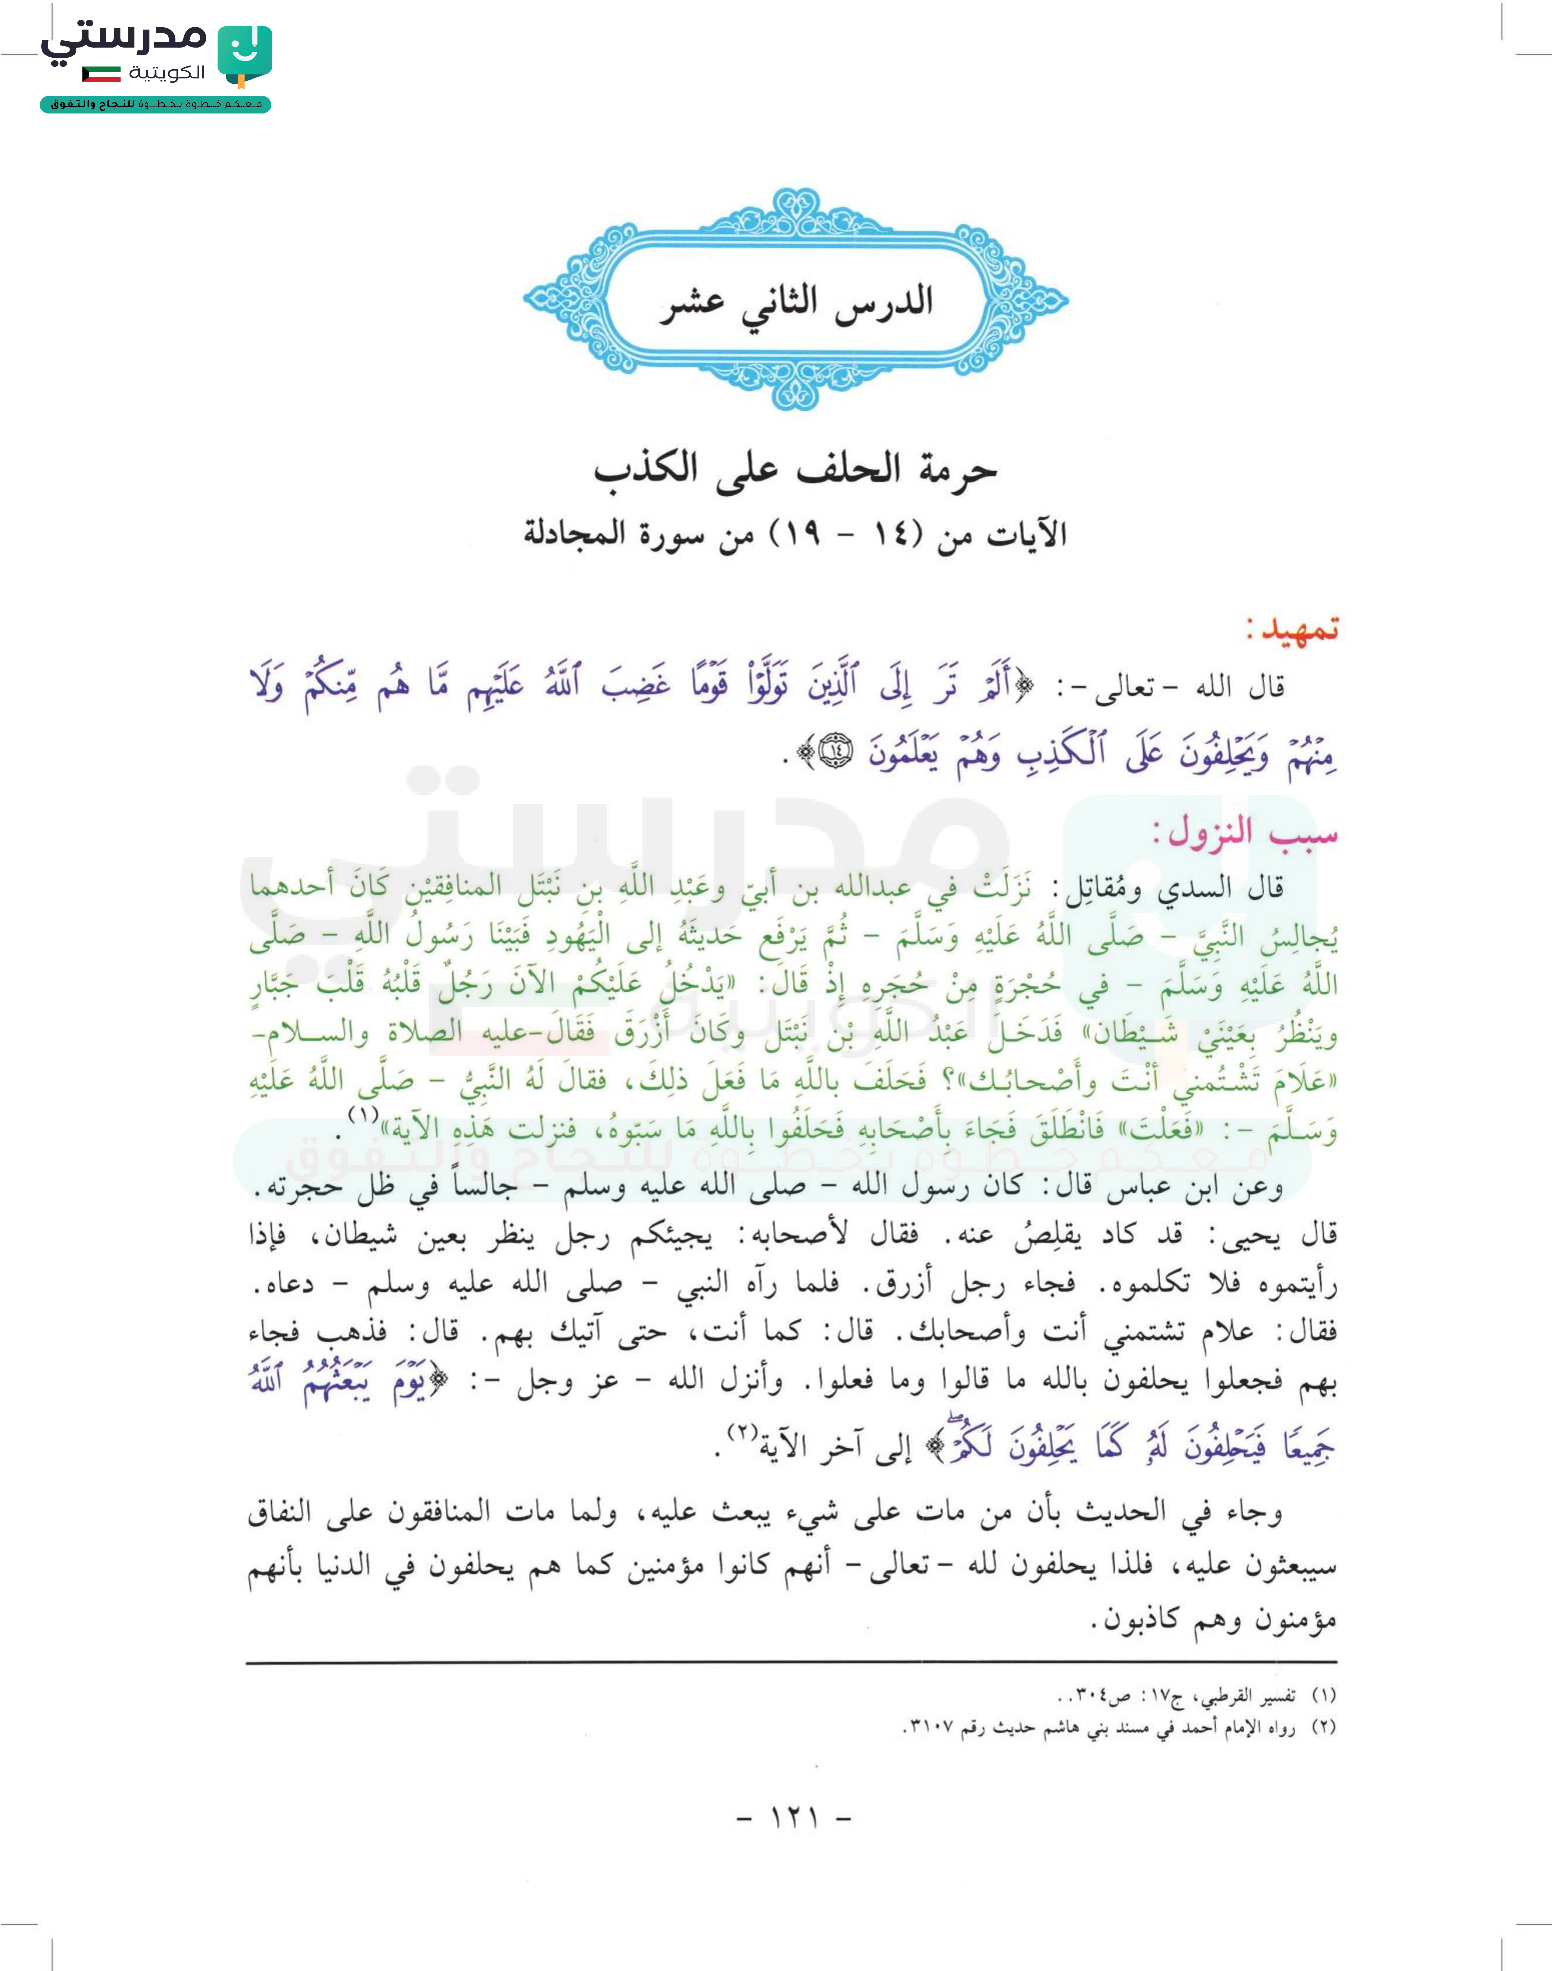 مدرستي
الكويتية
معكم خطوة بخطوة للنجاح والتفوق
الدرس الثاني عشر
حرمة الحلف على الكذب
الآيات من (١٤ - ١٩) من سورة المجادلة
تمهيد:
قال الله -تعالى-: ﴿أَلَمْ تَرَ إِلَى ٱلَّذِينَ تَوَلَّوْا۟ قَوْمًا غَضِبَ ٱللَّهُ عَلَيْهِم مَّا هُم مِّنكُمْ وَلَا
مِنْهُمْ وَيَحْلِفُونَ عَلَى ٱلْكَذِبِ وَهُمْ يَعْلَمُونَ ١٤﴾.
سبب النزول:
قال السدي ومُقاتِل: نَزَلَتْ في عبدالله بن أبيّ وعَبْدِ اللَّهِ بنِ نَبْتَل المنافِقيْن كَانَ أحدهما
يُجالِسُ النَّبِيَّ - صَلَّى اللَّهُ عَلَيْهِ وَسَلَّمَ - ثُمَّ يَرْفَع حَديثَهُ إلى الْيَهُودِ فَبَيْنَا رَسُولُ اللَّهِ - صَلَّى
اللَّهُ عَلَيْهِ وَسَلَّمَ - في حُجْرَةٍ مِنْ حُجَرِهِ إِذْ قَالَ: «يَدْخُلُ عَلَيْكُمْ الآنَ رَجُلٌ قَلْبُهُ قَلْبَ جَبَّارٍ
ويَنْظُرُ بِعَيْنَيْ شَيْطَان» فَدَخَلَ عَبْدُ اللَّهِ بْن نَبْتَل وكَانَ أَزْرَقَ فَقَالَ-عليه الصلاة والسلام-
«عَلَامَ تَشْتُمني أنْتَ وأَصْحابُك»؟ فَحَلَفَ باللَّهِ مَا فَعَلَ ذلِكَ، فقالَ لَهُ النَّبِيُّ - صَلَّى اللَّهُ عَلَيْهِ
وَسَلَّمَ -: «فَعَلْتَ» فَانْطَلَقَ فَجَاءَ بِأَصْحَابِهِ فَحَلَفُوا بِاللَّهِ مَا سَبّوهُ، فنزلت هَذِهِ الآية»(١).
وعن ابن عباس قال: كان رسول الله - صلى الله عليه وسلم - جالساً في ظل حجرته.
قال يحيى: قد كاد يقلِصُ عنه. فقال لأصحابه: يجيئكم رجل ينظر بعين شيطان، فإذا
رأيتموه فلا تكلموه. فجاء رجل أزرق. فلما رآه النبي - صلى الله عليه وسلم - دعاه.
فقال: علام تشتمني أنت وأصحابك. قال: كما أنت، حتى آتيك بهم. قال: فذهب فجاء
بهم فجعلوا يحلفون بالله ما قالوا وما فعلوا. وأنزل الله - عز وجل -: ﴿يَوْمَ يَبْعَثُهُمُ ٱللَّهُ
جَمِيعًا فَيَحْلِفُونَ لَهُۥ كَمَا يَحْلِفُونَ لَكُمْۖ﴾ إلى آخر الآية(٢).
وجاء في الحديث بأن من مات على شيء يبعث عليه، ولما مات المنافقون على النفاق
سيبعثون عليه، فلذا يحلفون لله -تعالى- أنهم كانوا مؤمنين كما هم يحلفون في الدنيا بأنهم
مؤمنون وهم كاذبون.
(١) تفسير القرطبي، ج١٧: ص٣٠٤..
(٢) رواه الإمام أحمد في مسند بني هاشم حديث رقم ٣١٠٧.
- ١٢١ -